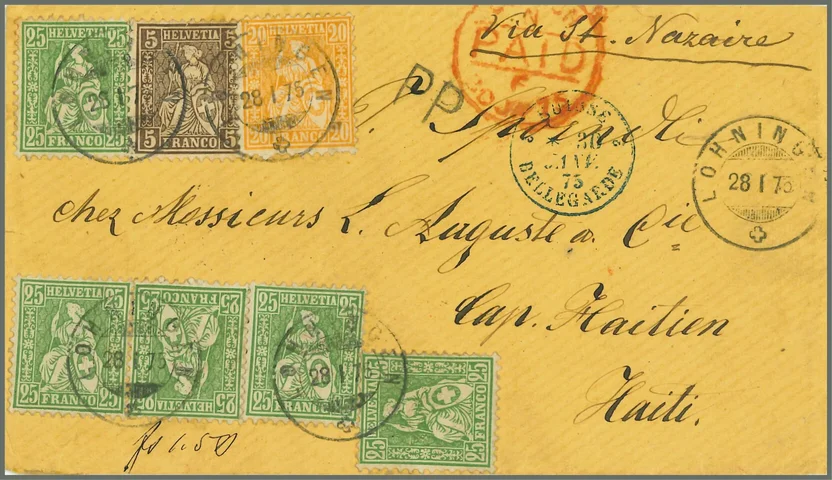 Via St. Nazaire
PAID
PP
25 HELVETIA 25
25 FRANCO 25
5 HELVETIA 5
5 FRANCO 5
20 HELVETIA 20
20 FRANCO 20
28 I 75
SUISSE
30
JANV.
75
BELLEGARDE
LOHNINGEN
28 I 75
chez Messieurs L. Auguste a. Cie
Cap. Haitien
Haïti.
25 HELVETIA 25
25 FRANCO 25
25 HELVETIA 25
25 FRANCO 25
25 HELVETIA 25
25 FRANCO 25
25 HELVETIA 25
25 FRANCO 25
LOHNINGEN
28 I 75
LOHNINGEN
28 I 75
fs 1.50